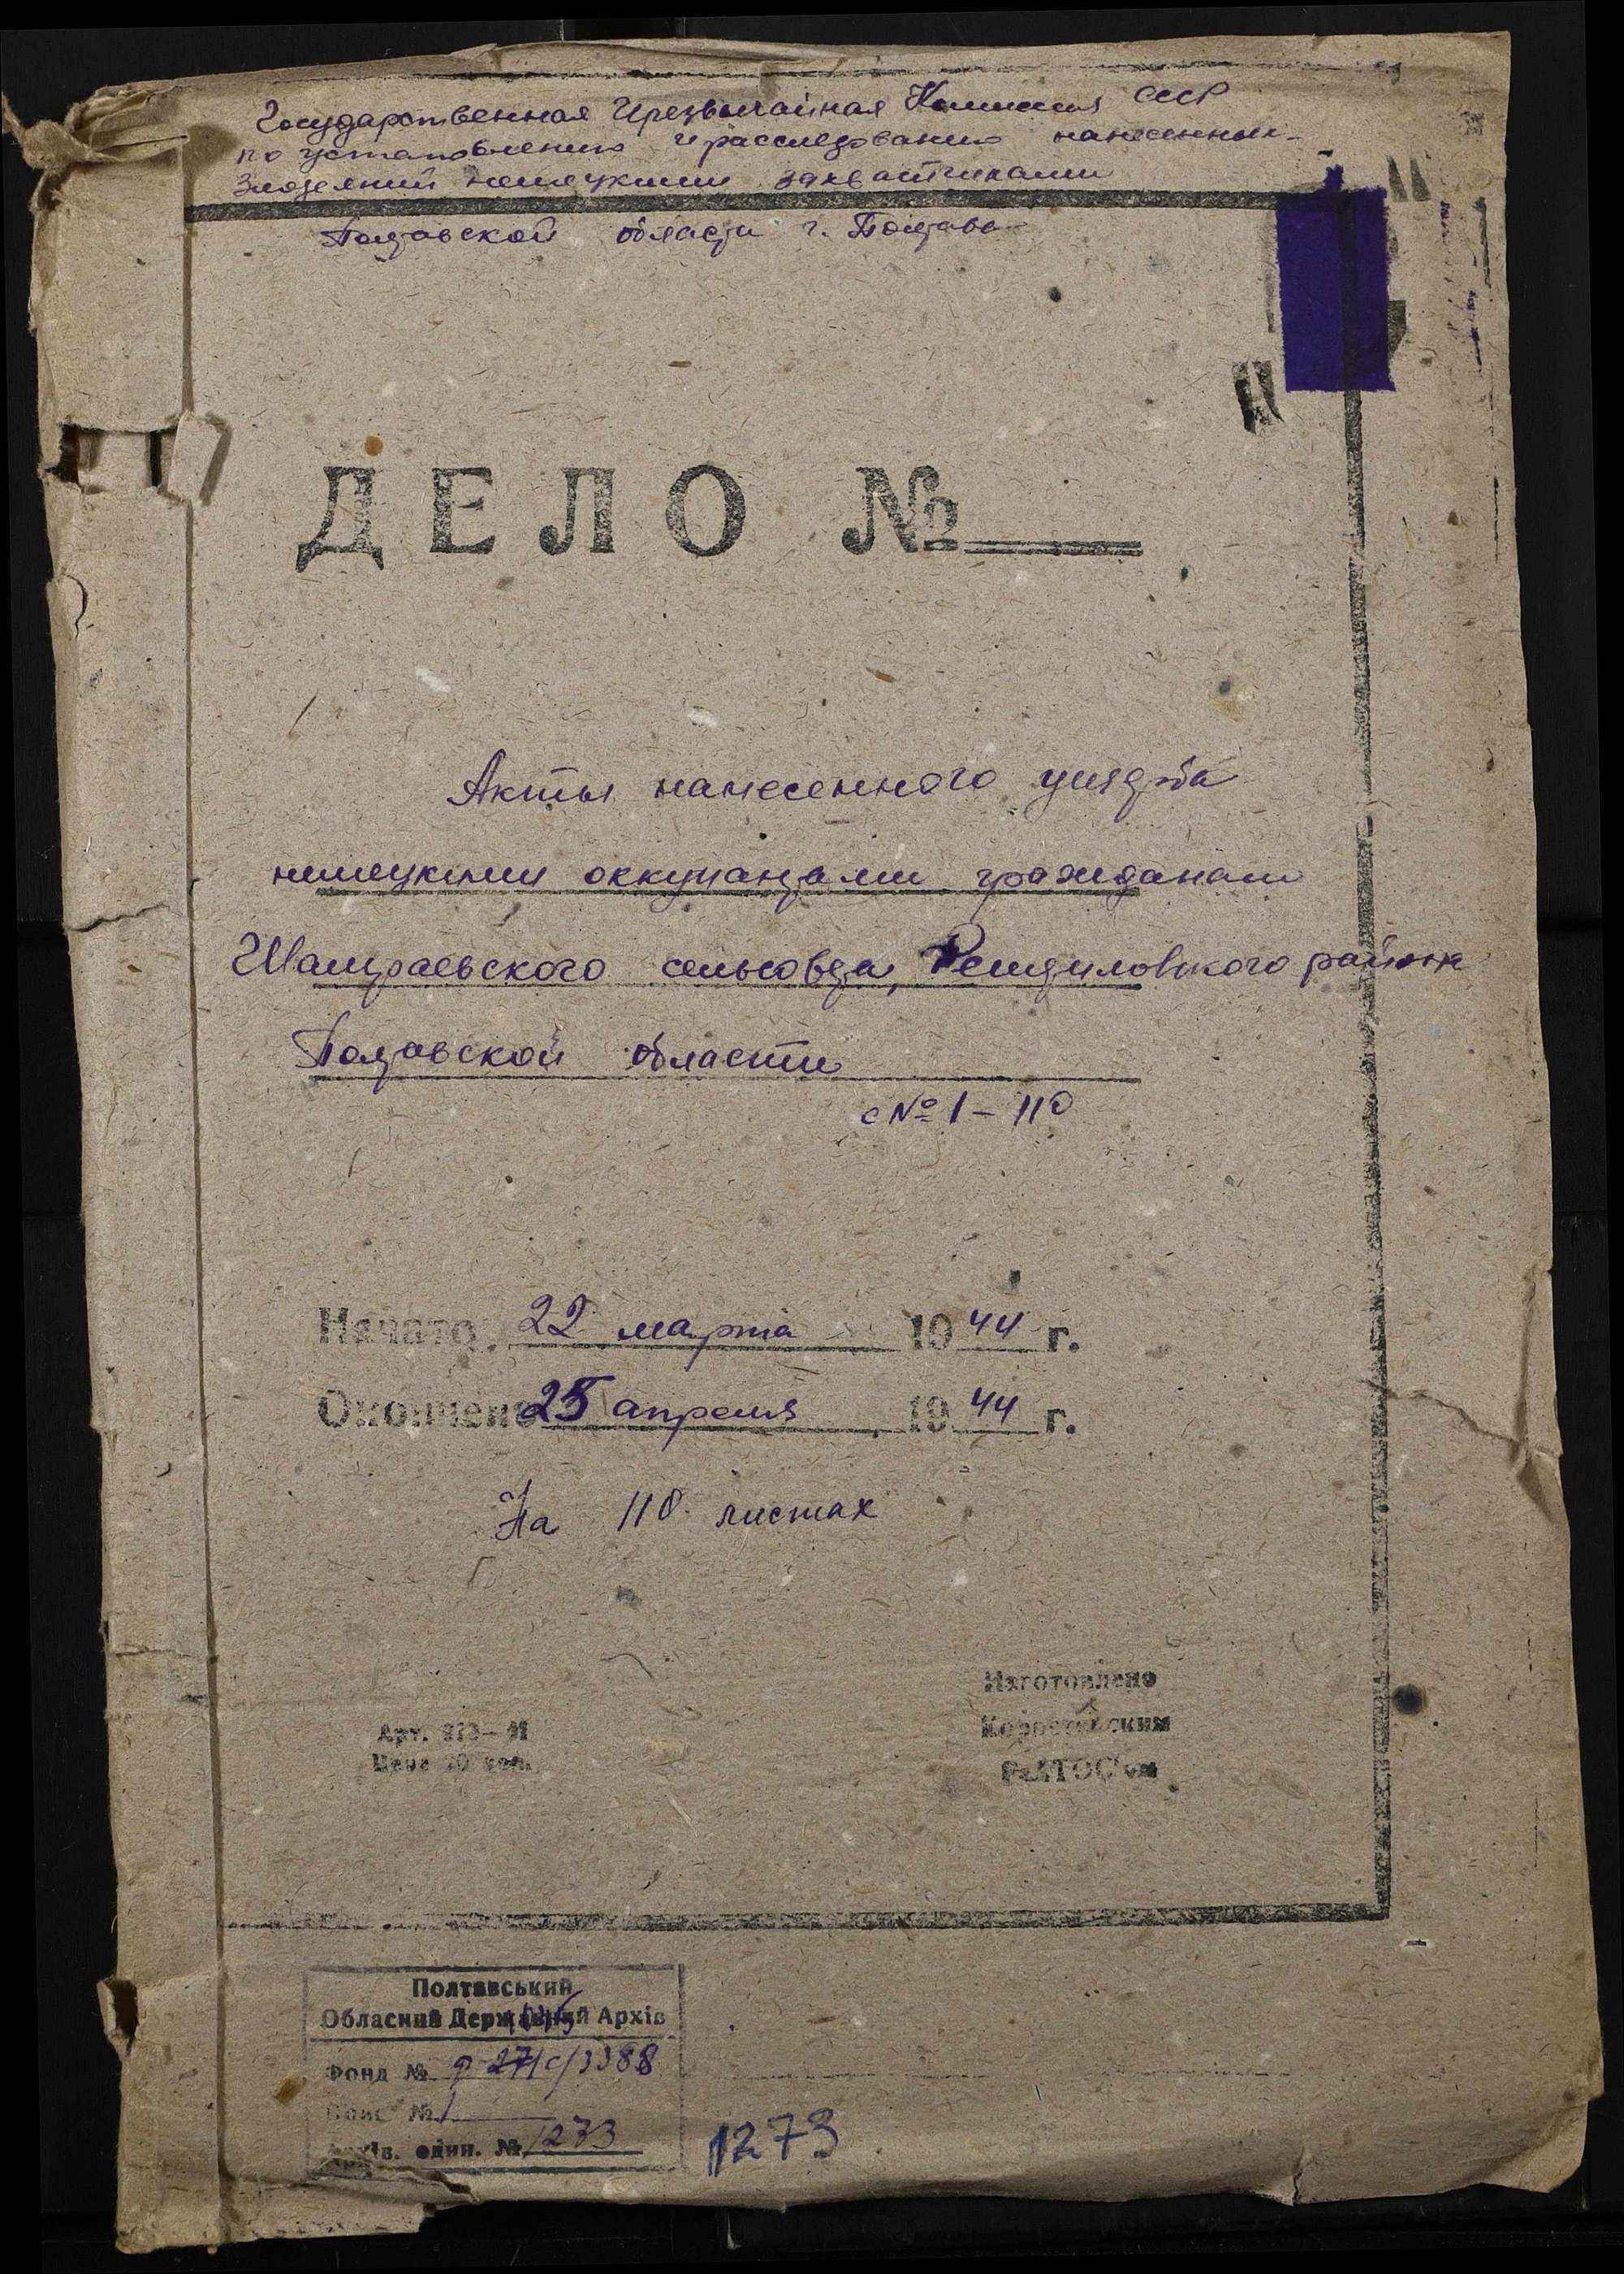 Государственная Чрезвычайная Комиссия СССР
по установлению и расследованию нанесенных
злодеяний немецкими захватчиками
Полтавской области г. Полтава
ДЕЛО №
Акты нанесенного ущерба
немецкими оккупантами гражданам
Шамраевского сельсовета, Решетиловского района
Полтавской области
с № 1 – 110
Начато 22 марта 1944 г.
Окончено 25 апреля 1944 г.
На 110 листах
Изготовлено
Арт. 973–41
Цена 70 коп.
Полтавський
Обласний Державний Архів
Фонд № 3388
Опис № 1
Архів. един. № 1273
1273